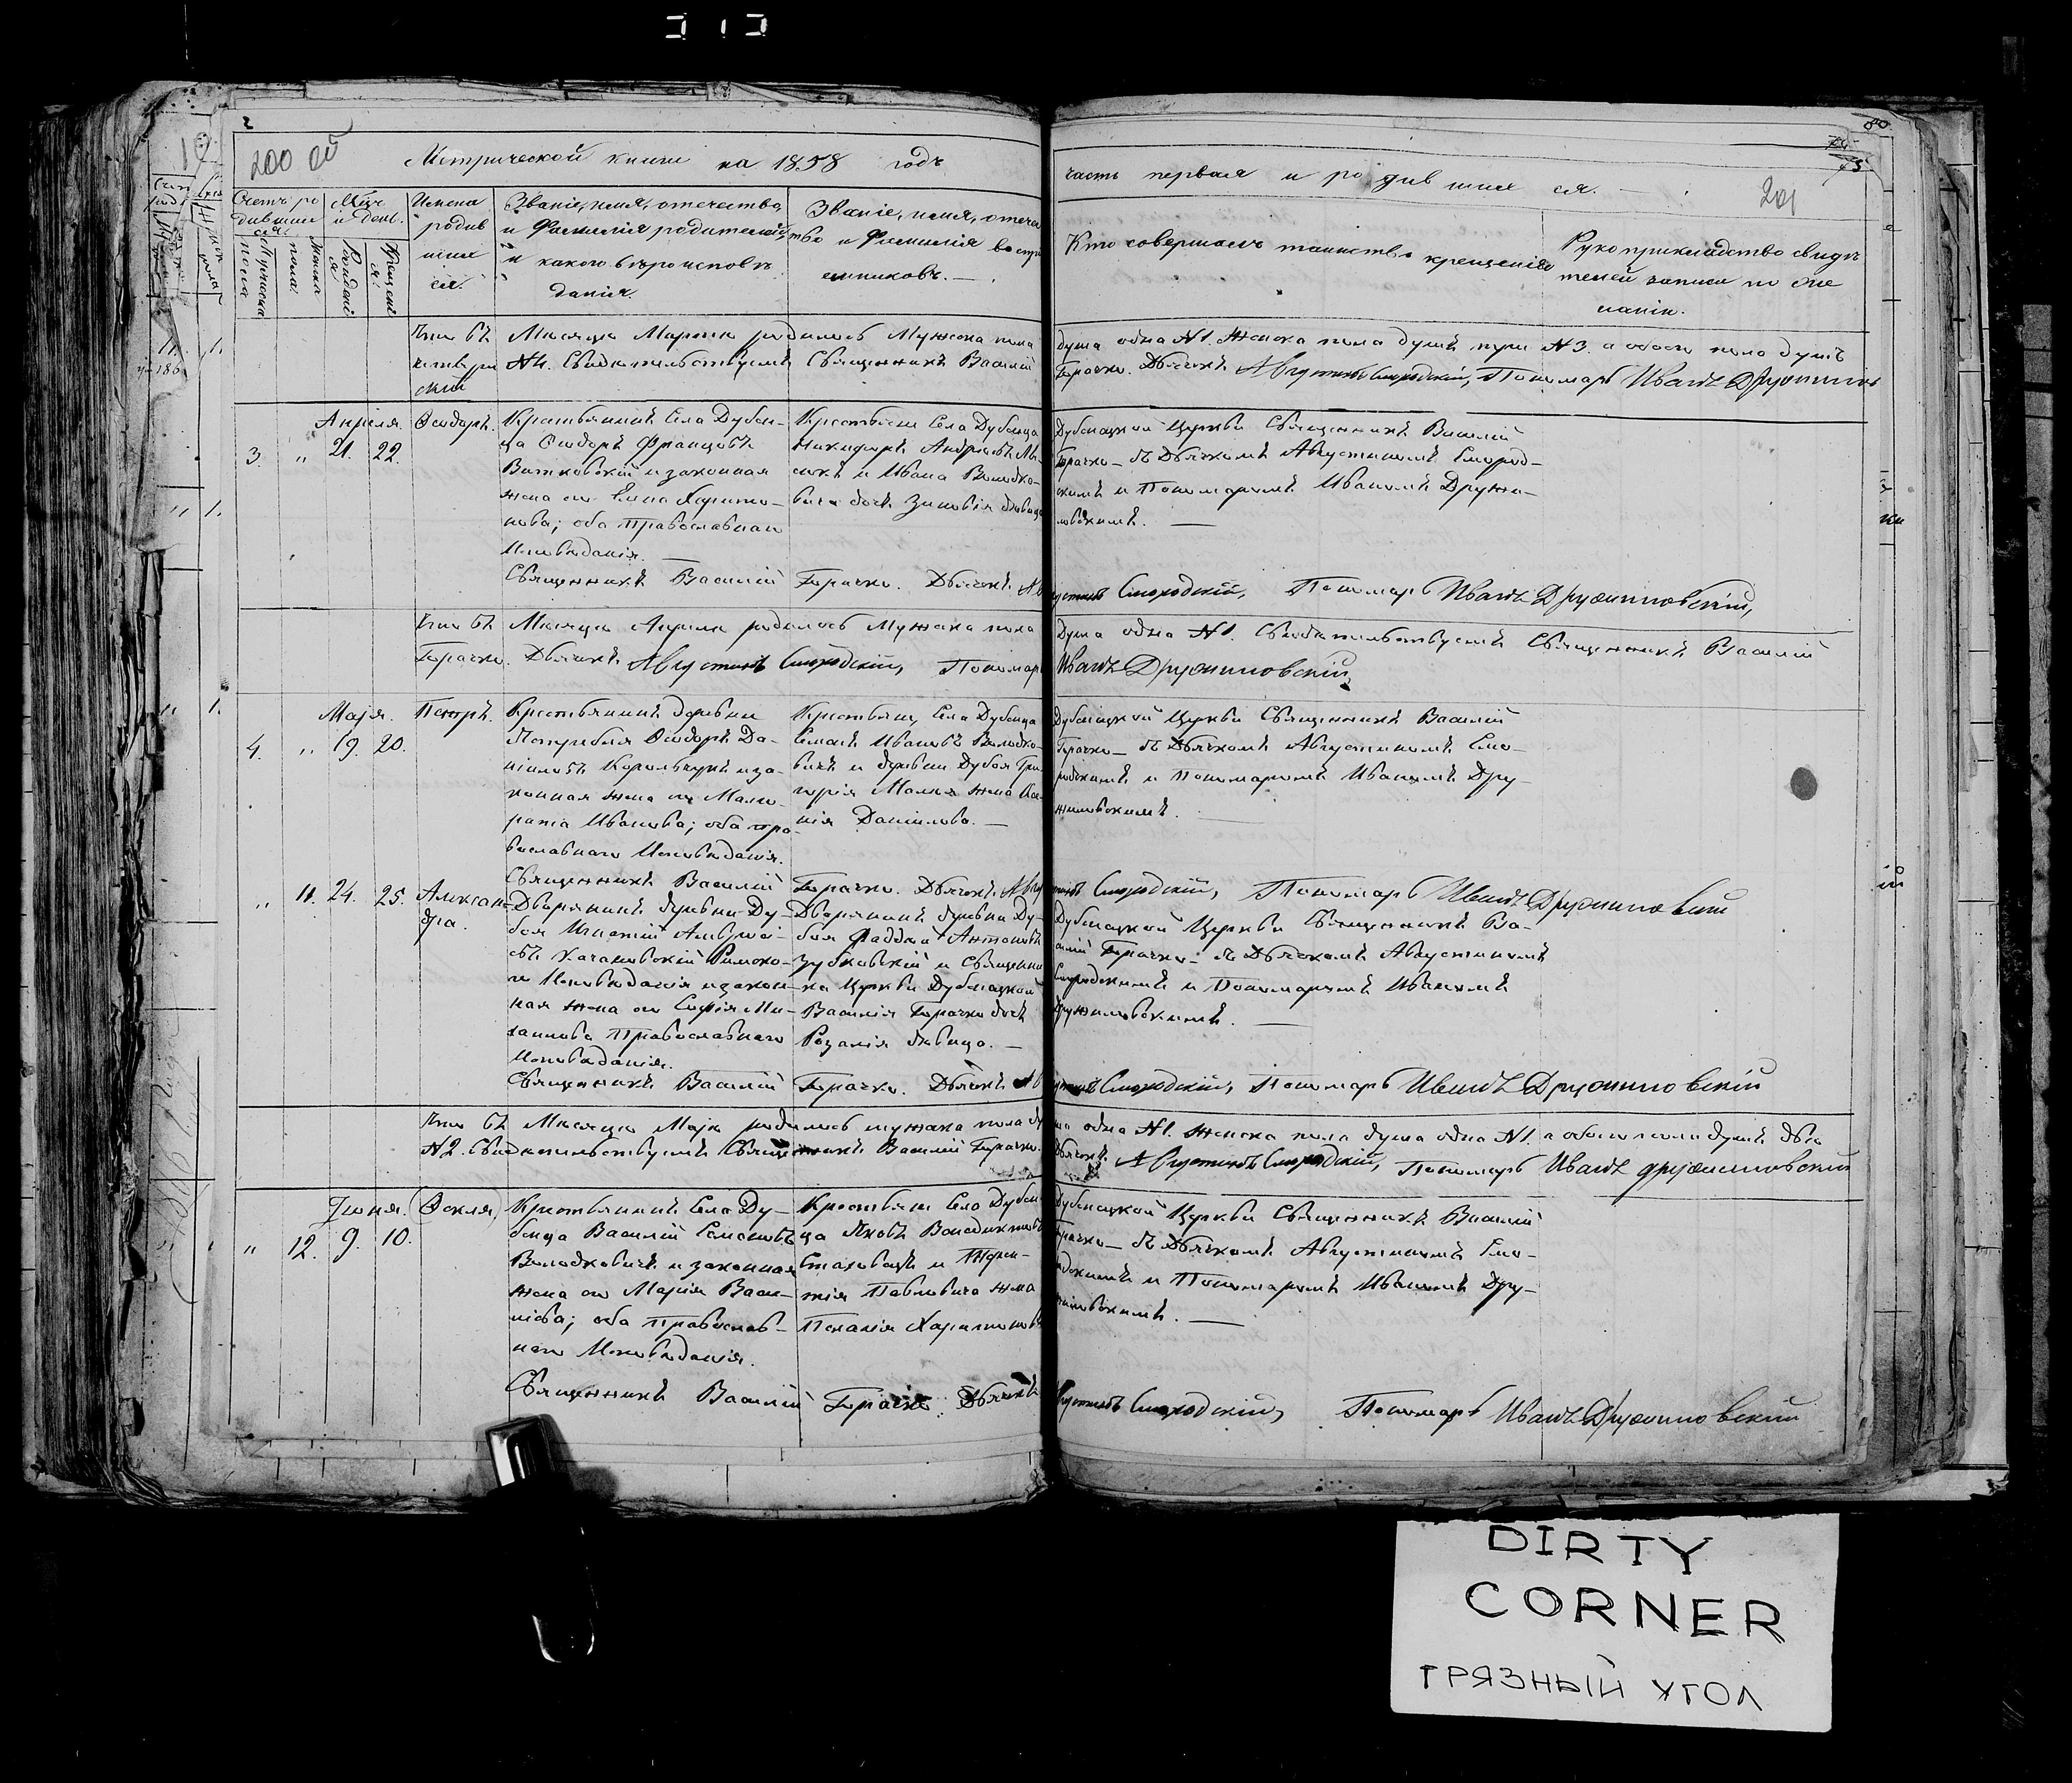 200 ой
Метрической книги на 1858 годъ
часть первая о родившихся.
201
75
Счетъ родившихся
Мужеска пола
Женска
Мѣс. и день.
Рожденія
Крещенія
Имена родившихся.
Званіе, имя, отечество, и Фамилія родителей, и какого вѣроисповѣданія.
Званіе, имя, отечество и Фамилія воспріемниковъ.
Кто совершалъ таинство крещенія
Рукоприкладство свидѣтелей записи по желанію.
Что въ Мѣсяцѣ Мартѣ родилось Мужеска пола
душа одна №1. Женска пола душъ три №3. а обоего пола душъ
четыри №4. Свидѣтельствуемъ Священникъ Василій
Горачко. Дьячекъ Августинъ Смородскій, Пономарь Иванъ Дружиловскій
Апрѣля.
3. " 21. 22.
Ѳеодоръ.
Крестьянинъ Села Дубен-
ца Ѳеодоръ Францовъ
Витковскій и законная
жена его Елена Харито-
нова; оба Православнаго
Исповѣданія.
Крестьяне Села Дубенца
Никифоръ Андреевъ
и Ивана Володко-
вича дочь Зиновія дѣвица
Дубенецкой Церкви Священникъ Василій
Горачко съ Дьячкомъ Августиномъ Смород-
скимъ и Пономаремъ Иваномъ Дружи-
ловскимъ.
Священникъ Василій Горачко. Дьячекъ Августинъ Смородскій, Пономарь Иванъ Дружиловскій,
Что въ Мѣсяцѣ Апрѣлѣ родилось Мужеска пола
душа одна №1. Свидѣтельствуемъ Священникъ Василій
Горачко. Дьячекъ Августинъ Смородскій, Пономарь Иванъ Дружиловскій,
Маія.
4. " 19. 20.
Петръ.
Крестьянинъ деревни
Ѳеодоръ Да-
ниловъ Корольчукъ и за-
конная жена его Мали-
рата Иванова; оба пра-
вославнаго Исповѣданія.
Крестьяне Села Дубенца
Семенъ Ивановъ Володко-
вичъ и деревни Дубоя Гри-
горія жена
Данилова.
Дубенецкой Церкви Священникъ Василій
Горачко съ Дьячкомъ Августиномъ Смо-
родскимъ и Пономаремъ Иваномъ Дру-
жиловскимъ.
Священникъ Василій Горачко. Дьячекъ Августинъ Смородскій, Пономарь Иванъ Дружиловскій
" 11. 24. 25.
Алексан-
дра.
Дворянинъ деревни Ду-
боя Игнатій
Качановскій Римско-
го Исповѣданія и закон-
ная жена его Софія Ми-
хаилова Православнаго
Исповѣданія.
Дворянинъ деревни Ду-
боя Фаддей Антоновъ
Зубковскій и Священни-
ка Церкви Дубенецкой
Василія Горачко дочь
Розалія дѣвица.
Дубенецкой Церкви Священникъ Ва-
силій Горачко съ Дьячкомъ Августиномъ
Смородскимъ и Пономаремъ Иваномъ
Дружиловскимъ.
Священникъ Василій Горачко. Дьячекъ Августинъ Смородскій, Пономарь Иванъ Дружиловскій
Что въ Мѣсяцѣ Маіѣ родилось мужеска пола душа одна №1. Женска пола душа одна №1. а обоего пола душъ двѣ
№2. Свидѣтельствуемъ Священникъ Василій Горачко. Дьячекъ Августинъ Смородскій, Пономарь Иванъ Дружиловскій
Іюня.
" 12. 9. 10.
Ѳекля
Крестьянинъ Села Ду-
бенца Василій Семеновъ
Володковичъ и законная
жена его Марія Васи-
ліева; оба Православ-
наго Исповѣданія.
Крестьяне Села Дубен-
ца Яковъ Венедиктовъ
и
Павловича жена
Пелагія Харитонова
Дубенецкой Церкви Священникъ Василій
Горачко съ Дьячкомъ Августиномъ Смо-
родскимъ и Пономаремъ Иваномъ Дру-
жиловскимъ.
Священникъ Василій Горачко. Дьячекъ Августинъ Смородскій, Пономарь Иванъ Дружиловскій
DIRTY
CORNER
ГРЯЗНЫЙ УГОЛ